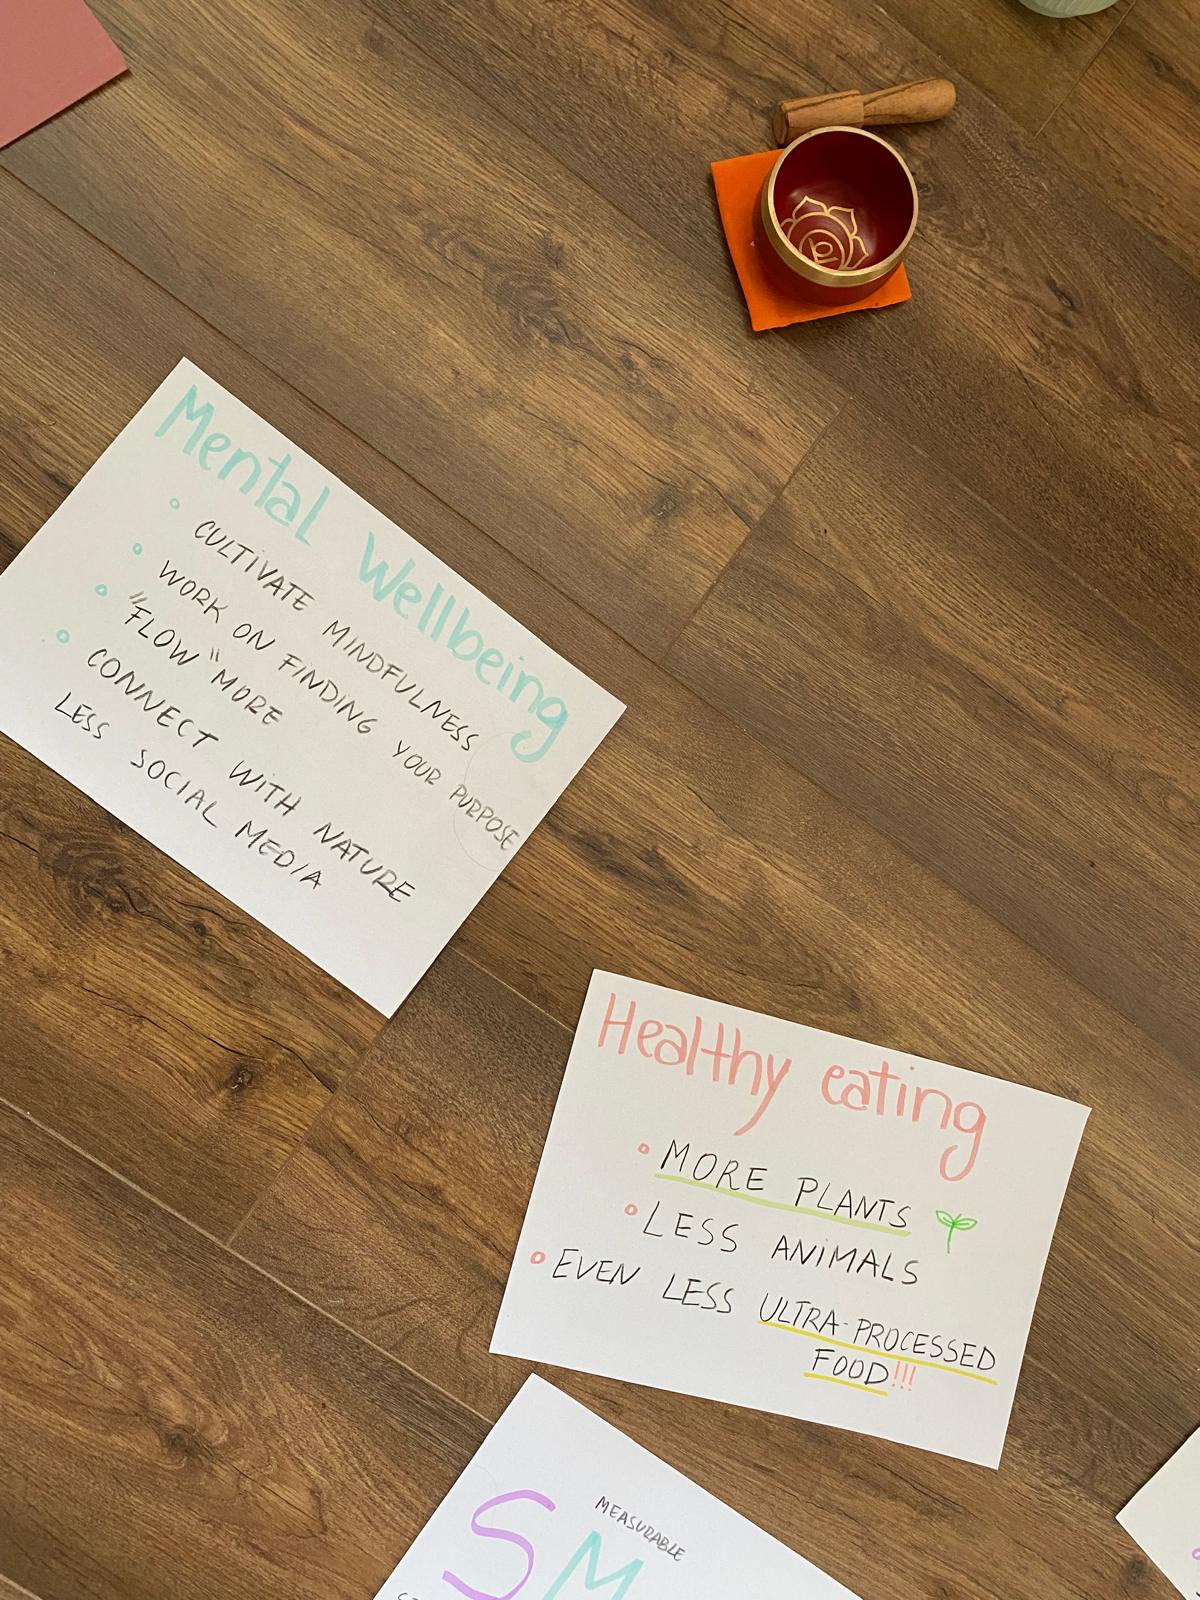 Mental Wellbeing
CULTIVATE MINDFULNESS
WORK ON FINDING YOUR PURPOSE
"FLOW" MORE
CONNECT WITH NATURE
LESS SOCIAL MEDIA
Healthy eating
MORE PLANTS
LESS ANIMALS
EVEN LESS ULTRA-PROCESSED
FOOD!!!
MEASURABLE
SM